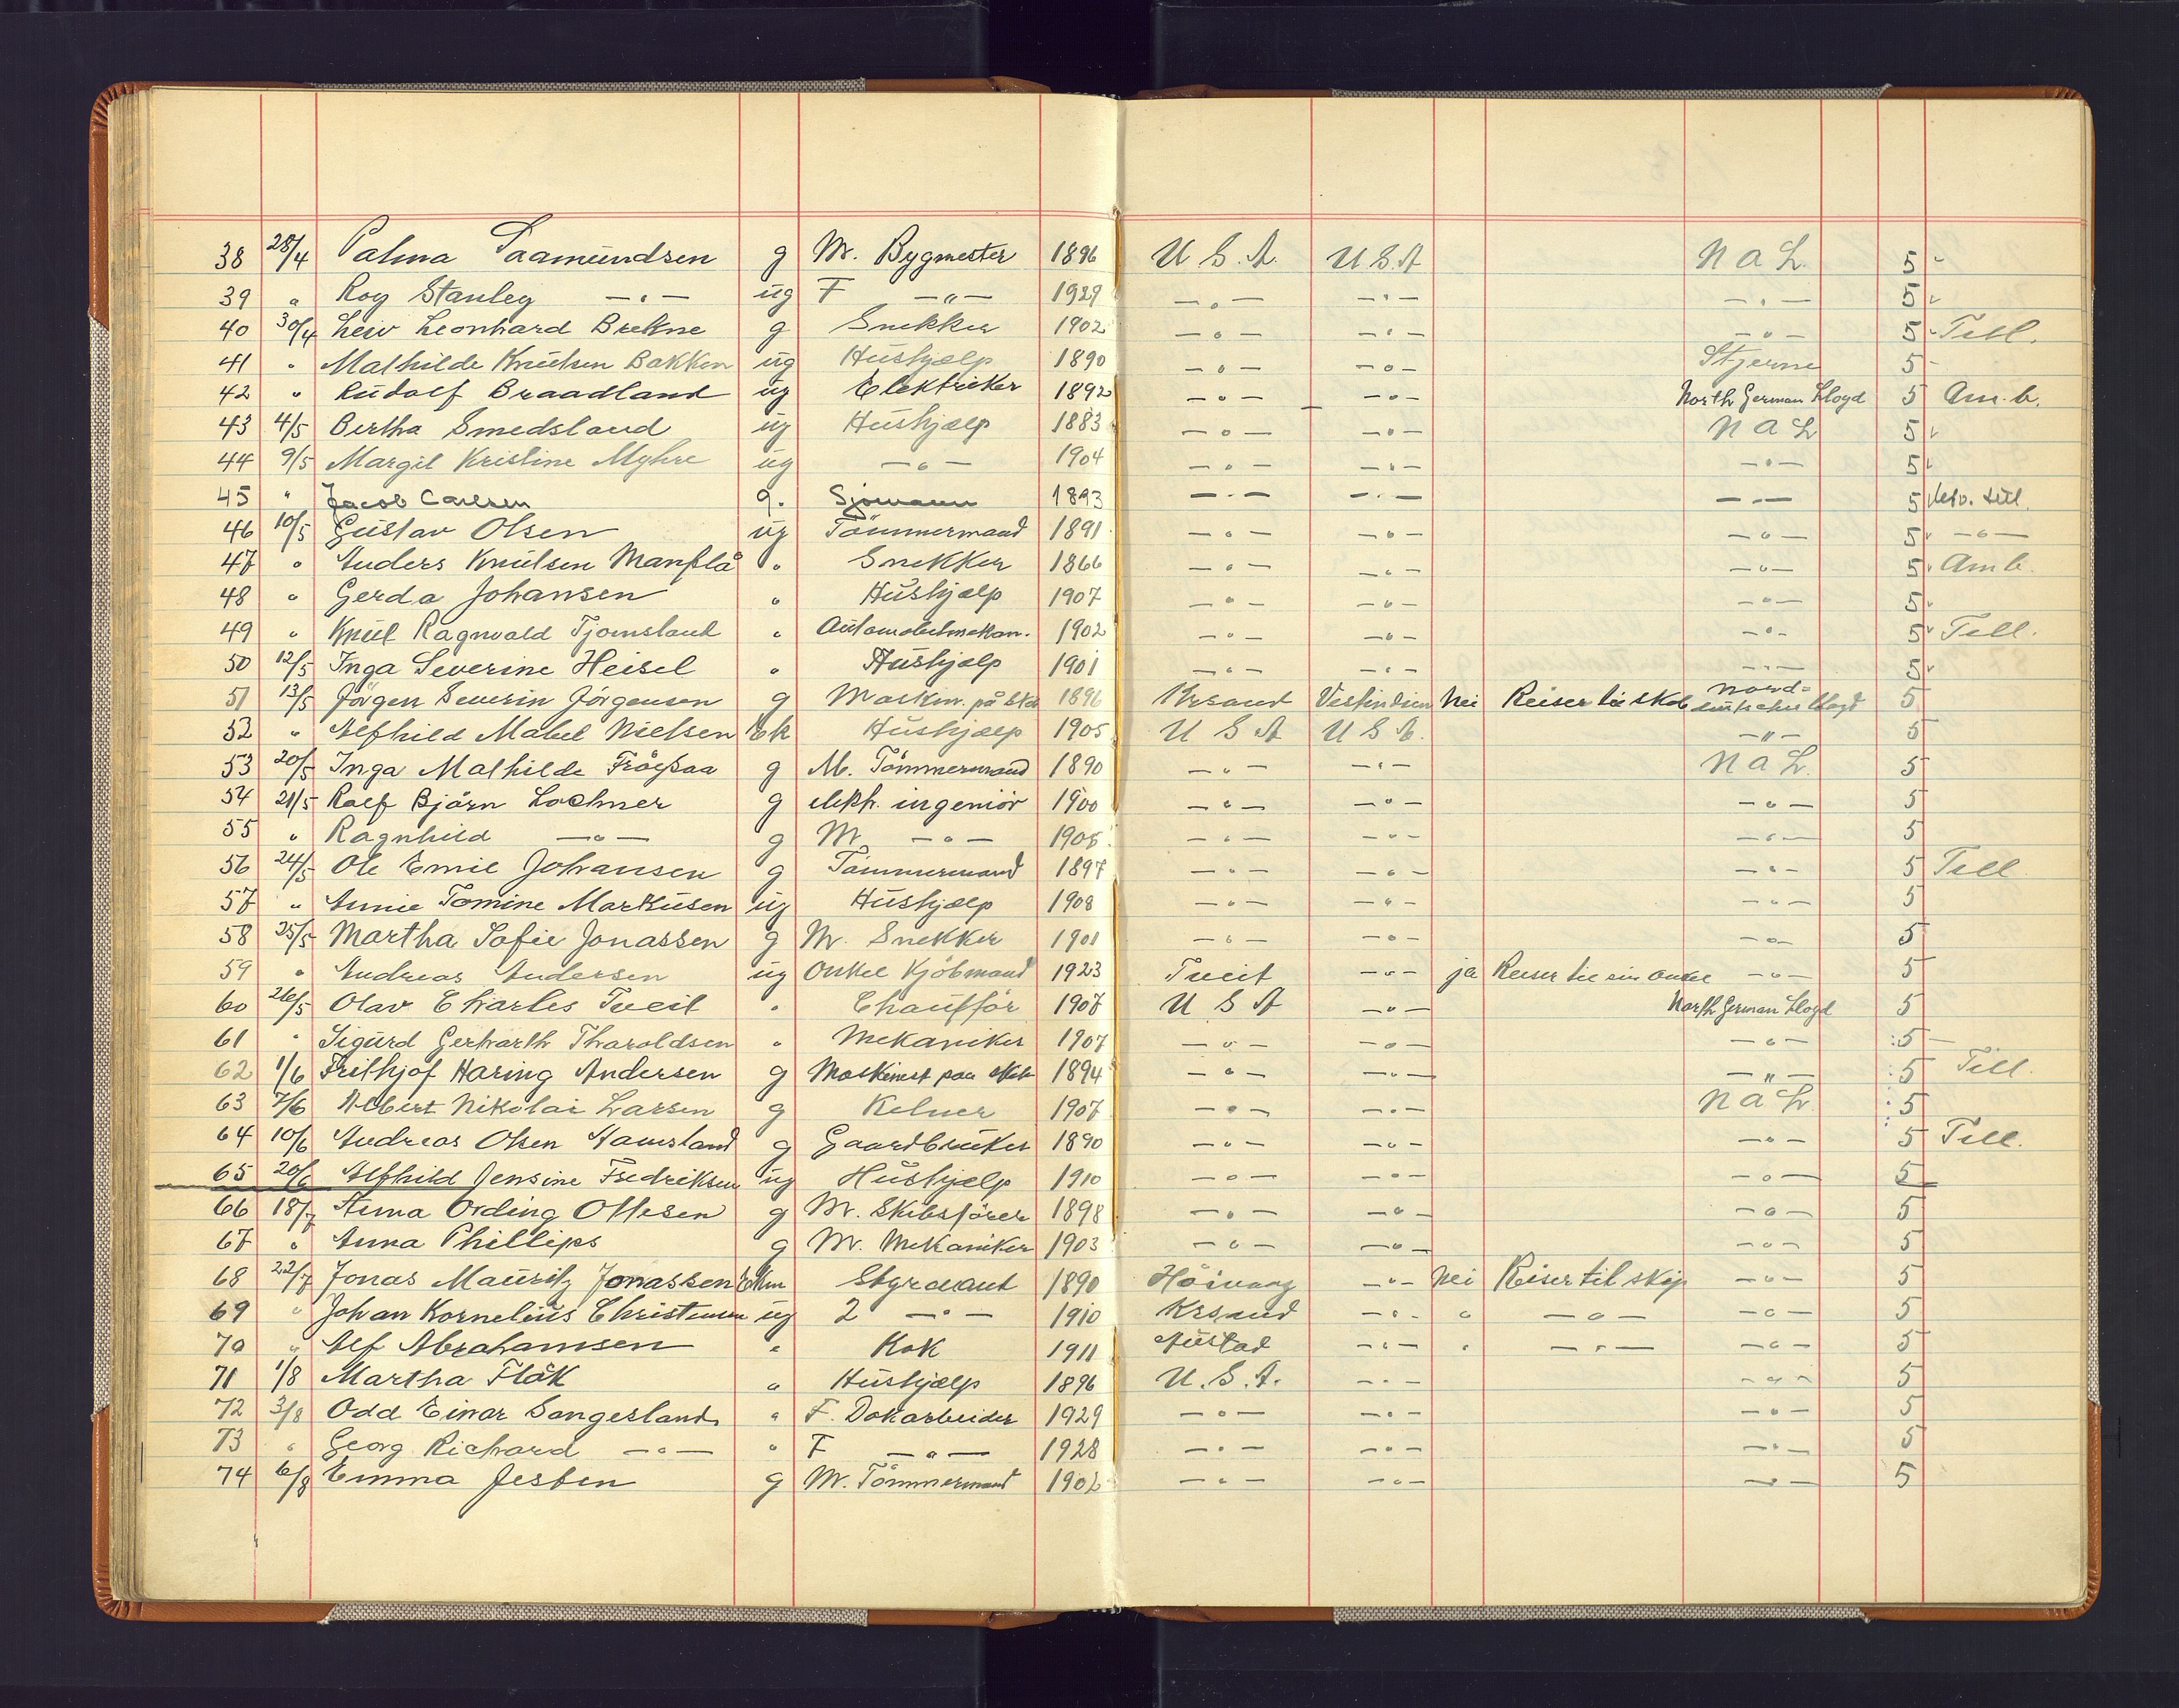 38 28/4 Palma Saamundsen g M. Bygmester 1896 U S. A. U S. A N A L. 5
39 " Roy Stanley —"— ug F —"— 1929 —"— —"— —"— 5
40 30/4 Leiv Leonhard Brekne g Snekker 1902 —"— —"— —"— 5 Till.
41 " Mathilde Knutsen Bakken ug Hushjælp 1890 —"— —"— Stjerne 5
42 " Rudolf Braadland ug Elektriker 1892 —"— —"— North German Lloyd 5 Am. b.
43 4/5 Bertha Smedsland ug Hushjælp 1883 —"— —"— N A L 5
44 9/5 Margit Kristine Myhre ug —"— 1904 —"— —"— —"— 5
45 " Jacob Carlsen g. Sjømann 1893 —"— —"— —"— 5 till.
46 10/5 Gustav Olsen ug Tömmermand 1891 —"— —"— —"— 5 —"—
47 " Anders Knutsen Manflå " Snekker 1866 —"— —"— —"— 5 Am b.
48 " Gerda Johansen " Hushjælp 1907 —"— —"— —"— 5
49 " Knut Ragnvald Tjomsland " Automobilmekan. 1902 —"— —"— —"— 5 Till.
50 12/5 Inga Severine Heisel " Hushjælp 1901 —"— —"— —"— 5
51 13/5 Jörgen Severin Jörgensen g Maskin. på skib 1896 Krsand Vestindien Nei Reiser til skib Nord-deutscher Lloyd 5
52 " Alfhild Mabel Nielsen Ek Hushjælp 1905 U S A U S A. —"— 5
53 20/5 Inga Mathilde Fröysaa g M. Tömmermand 1890 —"— —"— N A L. 5
54 21/5 Rolf Björn Lochner g elektr. ingeniör 1900 —"— —"— —"— 5
55 " Ragnhild —"— g M —"— 1905 —"— —"— —"— 5
56 24/5 Ole Emil Johansen g Tömmermand 1897 —"— —"— —"— 5 Till
57 " Annie Tomine Markusen ug Hushjælp 1908 —"— —"— —"— 5
58 25/5 Martha Sofie Jonassen g M. Snekker 1901 —"— —"— —"— 5
59 " Andreas Andersen ug Onkel Kjöbmand 1923 Tveit —"— ja Reiser til sin onkel —"— 5
60 26/5 Olav Charles Tveit " Chaufför 1907 U S A —"— North German Lloyd 5
61 " Sigurd Gerhardt Tharoldsen " Mekaniker 1907 —"— —"— —"— 5
62 1/6 Frithjof Haring Andersen g Maskinist paa skib 1894 —"— —"— —"— 5 Till.
63 7/6 Albert Nikolai Larsen g Kelner 1907 —"— —"— N A L. 5
64 10/6 Andreas Olsen Haugland g Gaardbruker 1890 —"— —"— —"— 5 Till.
65 20/6 Alfhild Jensine Fredriksen ug Hushjælp 1910 —"— —"— —"— 5
66 18/7 Anna Ording Ottesen g M. Skibsförer 1898 —"— —"— —"— 5
67 " Anna Phillips g M. Mekaniker 1903 —"— —"— —"— 5
68 22/7 Jonas Mauritz Jonassen Ekm Styrmand 1890 Höivaag —"— Nei Reiser til skip —"— 5
69 " Johan Kornelius Christensen ug 2 —"— 1910 Krsand —"— " —"— —"— 5
70 " Alf Abrahamsen " Kok 1911 Austad —"— " —"— —"— 5
71 1/8 Martha Flåk " Hushjælp 1896 U. S. A. —"— —"— 5
72 3/8 Odd Einar Songesland " F. Dokarbeider 1929 —"— —"— —"— 5
73 " Georg Richard —"— " F —"— 1928 —"— —"— —"— 5
74 6/8 Emma Jesten g M. Tömmermand 1902 —"— —"— —"— 5